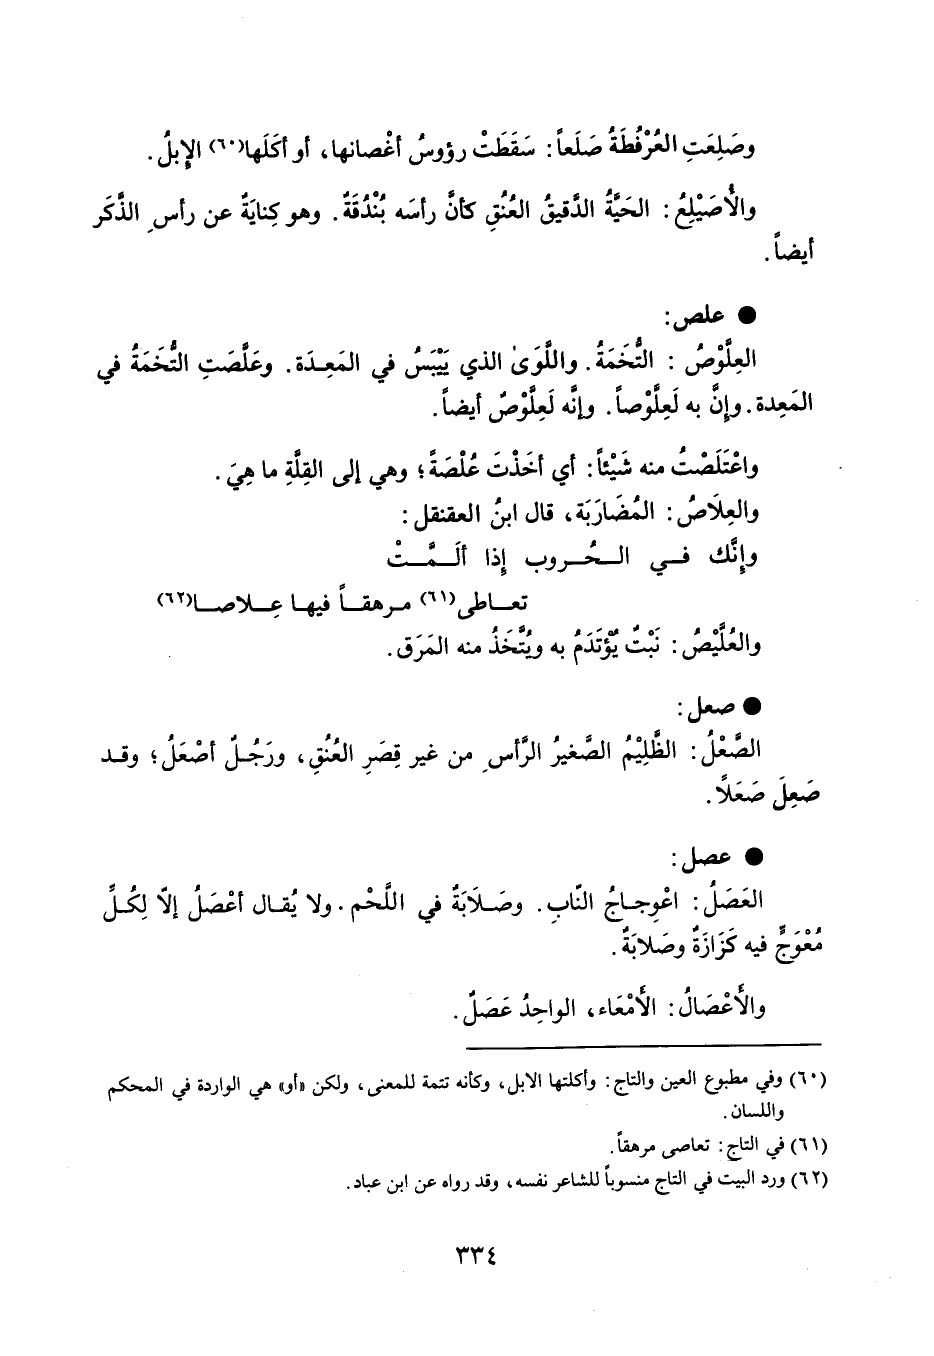 وصَلِعَتِ العُرْفُطَةُ صَلَعاً: سَقَطَتْ رؤوسُ أغْصانها، أو أكَلَها(٦٠) الإِبلُ.
والأُصَيْلِعُ: الحَيَّةُ الدَّقيقُ العُنُقِ كأنَّ رأسَه بُنْدُقَةٌ. وهو كِنايَةٌ عن رأسِ الذَّكَر
أيضاً.
● علص:
العِلَّوْصُ: التُّخَمَةُ. واللَّوَىٰ الذي يَيْبَسُ في المَعِدَة. وعَلَّصَتِ التُّخَمَةُ في
المَعِدة. وإنَّ به لَعِلَّوْصاً. وإنَّه لَعِلَّوْصٌ أيضاً.
واعْتَلَصْتُ منه شَيْئاً: أي أخَذْتَ عُلْصَةً؛ وهي إلى القِلَّةِ ما هِيَ.
والعِلَاصُ: المُضَارَبَة، قال ابنُ العقنقل:
وإنَّك في الحُروب إذا ألَمَّتْ
تعاطى(٦١) مرهقاً فيها عِلاصا(٦٢)
والعُلَّيْصُ: نَبْتٌ يُؤْتَدَمُ به ويُتَّخَذُ منه المَرَق.
● صعل:
الصَّعْلُ: الظَّلِيْمُ الصَّغيرُ الرَّأسِ من غير قِصَرِ العُنُقِ، ورَجُلٌ أصْعَلُ؛ وقد
صَعِلَ صَعَلًا.
● عصل:
العَصَلُ: اعْوِجاجُ النّابِ. وصَلَابَةٌ في اللَّحْم. ولا يُقال أعْصَلُ إلّا لِكُلِّ
مُعْوَجٍّ فيه كَزَازَةٌ وصَلابَةٌ.
والأَعْصَالُ: الأَمْعَاء، الواحِدُ عَصَلٌ.
(٦٠) وفي مطبوع العين والتاج: وأكلتها الابل، وكأنه تتمة للمعنى، ولكن «أو» هي الواردة في المحكم
واللسان.
(٦١) في التاج: تعاصى مرهقاً.
(٦٢) ورد البيت في التاج منسوباً للشاعر نفسه، وقد رواه عن ابن عباد.
٣٣٤